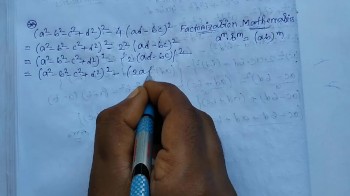 (a²-b²-c²+d²)² - 4(ad-bc)² Factorization Mathematics
= (a²-b²-c²+d²)² - 2²(ad-bc)² aᵐ.bᵐ = (ab)ᵐ
= (a²-b²-c²+d²)² - {2(ad-bc)}²
= (a²-b²-c²+d²)² - (2a